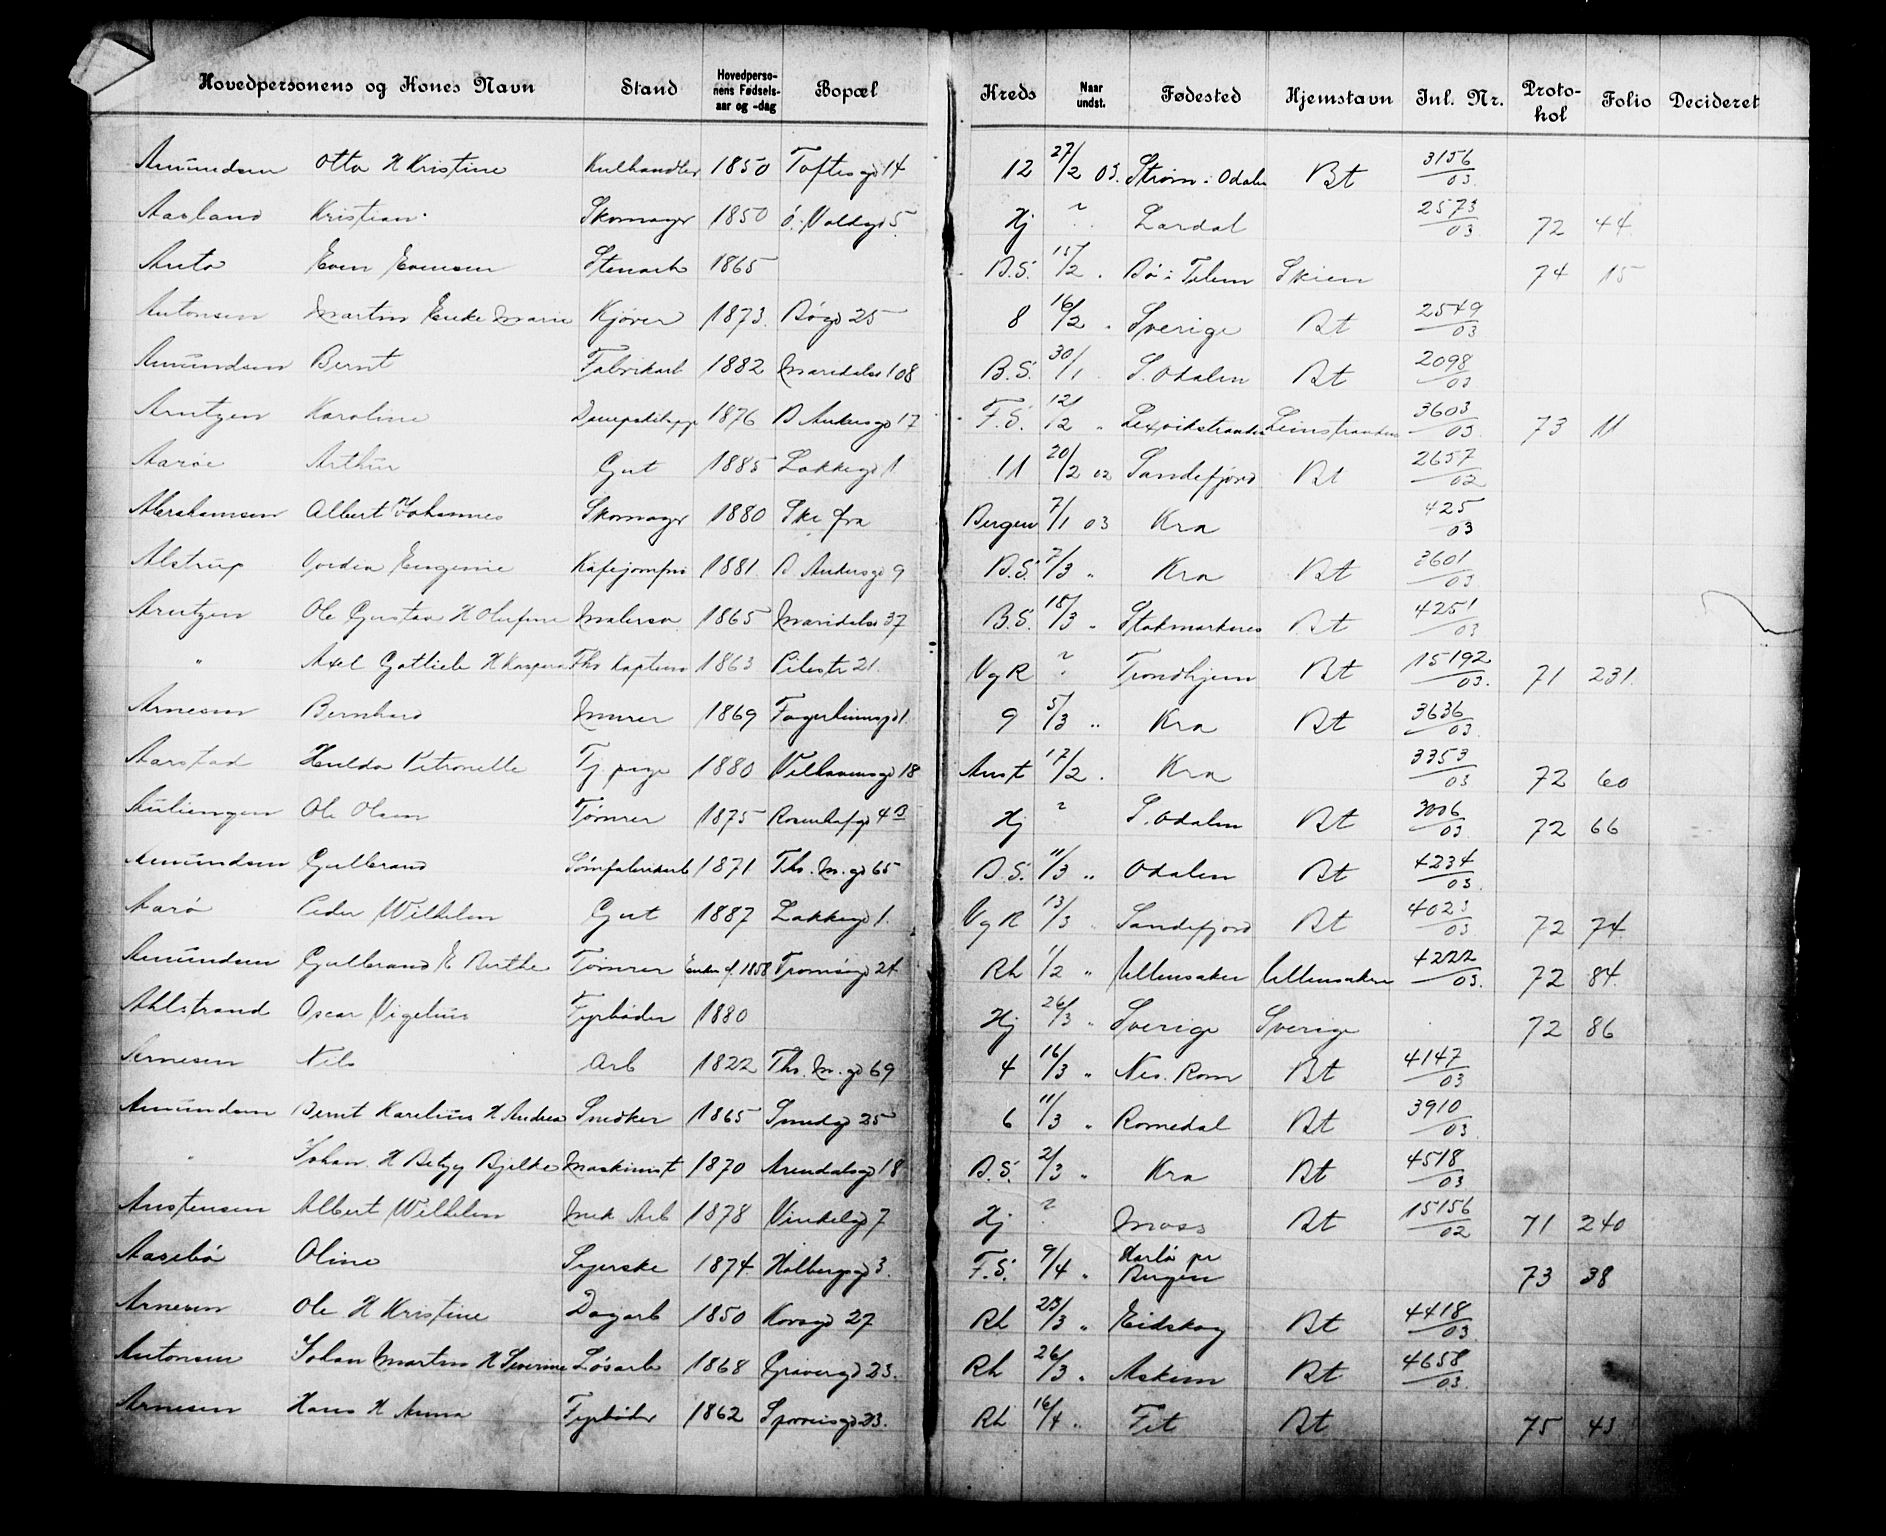 Hovedpersonens og Kones Navn Stand Hovedperso-nens Fødsels-aar og -dag Bopæl Kreds Naar undst. Fødested Hjemstavn Inl. Nr. Proto-kol Folio Decideret
Amundsen Otto H Kristine Kulhandler 1850 Toftesgd 14 12 27/2 03. Strøm i Odalen Bt 3156/03
Aasland Kristian Skomager 1850 ö. Voldgd 5 Hj ? Lardal 2573/03 72 44
Even Evensen Stenarb 1865 B.S. 15/2 Bö i Telem Skien 74 15
Antonsen Martin Enke Marie Kjører 1873 Bögd 25 8 16/2 Sverige Bt 2549/03
Amundsen Bernt Fabrikarb 1882 Maridalsv 108 B.S. 30/1 S. Odalen Bt 2098/03
Arntzen Karoline 1876 B Ankersgd 17 F.S. 12/2 " Leinstranden 3603/03 73 11
Aaröe Arthur Gut 1885 Lakkegd 1 11 20/2 02 Sandefjord Bt 2657/02
Abrahamsen Albert Johannes Skomager 1880 Ske fra Bergen 7/1 03 Kra 425/03
Alstrup Eugenie Kafejomfru 1881 B Ankersgd 9 B.S. 7/3 " Kra Bt 3601/03
Arntzen Ole Gustav H Olufine Malersv 1865 Maridalsv 37 B.S. 18/3 " Stokmarknes Bt 4251/03
" Axel Gotlieb H Fhv Kaptein 1863 Pilestr 21 VgR ? Trondhjem Bt 15192/03 71 231
Arnesen Bernhard Murer 1869 Fagerliensgd 1 9 5/3 " Kra Bt 3636/03
Aarstad Hulda Petronelle Tj. pige 1880 Welhavensgd 18 Anst 17/2 Kra 3353/03 72 60
Auliengen Ole Olsen Tømrer 1875 Rosenhofgd 4 B Hj ? S. Odalen Bt 3006/03 72 66
Amundsen Gulbrand Sömfabrikarb 1871 Ths. M. gd 65 B.S. 11/3 " Odalen Bt 4234/03
Aarö Peder Wilhelm Gut 1887 Lakkegd 1 VgR 13/3 " Sandefjord Bt 4023/03 72 74
Amundsen Gulbrand E Berthe Tømrer Enken f. 1858 Tromsögd 24 Rh 1/2 " Ullensaker Ullensaker 4222/03 72 84
Ahlstrand Oscar Vigelius Fyrböder 1880 Hj 26/3 " Sverige Sverige 72 86
Arnesen Nils Arb 1822 Ths. M. gd 69 4 16/3 " Nes. Rom Bt 4147/03
Amundsen Bernt Karelius H Andrea Snedker 1865 Smedgd 25 6 11/3 " Romedal Bt 3910/03
" Johan H Betzy Bjelke Maskinist 1870 Arendalsgd 18 B.S. 2/3 " Kra Bt 4518/03
Anstensen Albert Wilhelm Mek Arb 1878 Vinkelgd 7 Hj ? Moss Bt 15156/02 71 240
Aasebö Oline Syerske 1874 Holbergsgd 3 F.S. 9/4 " Herlö pr Bergen 73 38
Arnesen Ole H Kristine Dagarb 1850 Korsgd 27 Rh 23/3 " Eidskog Bt 4418/03
Antonsen Johan Martin H Severine Løsarb 1868 Gravergd 23 Rh 26/3 " Askim Bt 4658/03
Arnesen Hans H Anna Fyrböder 1862 Sporveisgd 23 Rh 16/4 " Fet Bt 75 43